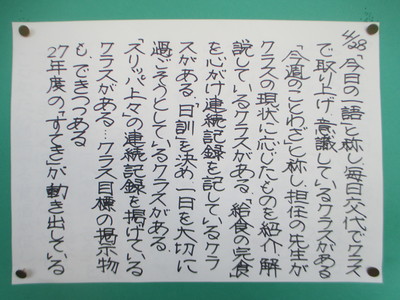 4/28
今日の一語」と称し毎日交代でクラス
で取り上げ意識しているクラスがある
「今週のことわざ」と称し、担任の先生が
クラスの現状に応じたものを紹介、解
説しているクラスがある、「給食の完食」
を心がけ連続記録を記しているクラ
スがある、「日訓」を決め一日を大切に
過ごそうとしているクラスがある、
「スリッパ上々」の連続記録を掲げている
クラスがある…クラス目標の掲示物
も、できつつある
27年度の「すてき」が動き出している